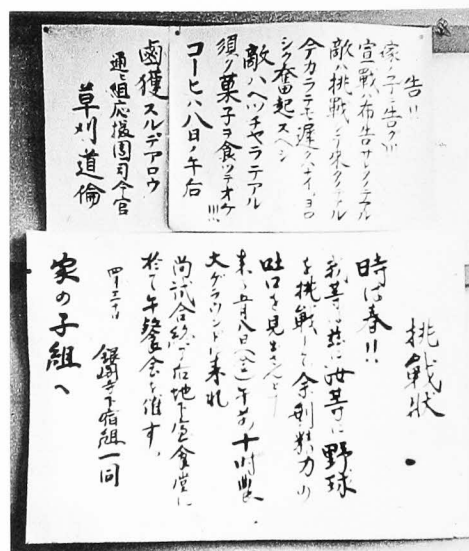 告!!
家ノ子ニ告グ!!!
宣戦ハ布告サレタノデアル
敵ハ挑戦シテ来タノデアル
今カラデモ遅クハナイ、ヨロ
シク奮起スベシ
敵ハヘツチヤラデアル
須ク菓子ヲ食ツテオケ!!!
コーヒハ八日ノ午后
鹵獲スルデアロウ
通ヒ組応援団司令官
草刈道倫
挑戦状
時は春!!
我等は茲に汝等に野球
を挑戦して余剰精力の
吐口を見出さんとす
来る五月八日(金)午前十時
大グラウンドに来れ
尚試合終了后地下室食堂に
於て午餐会を催す。
銀閣寺下宿組一同
家の子組へ